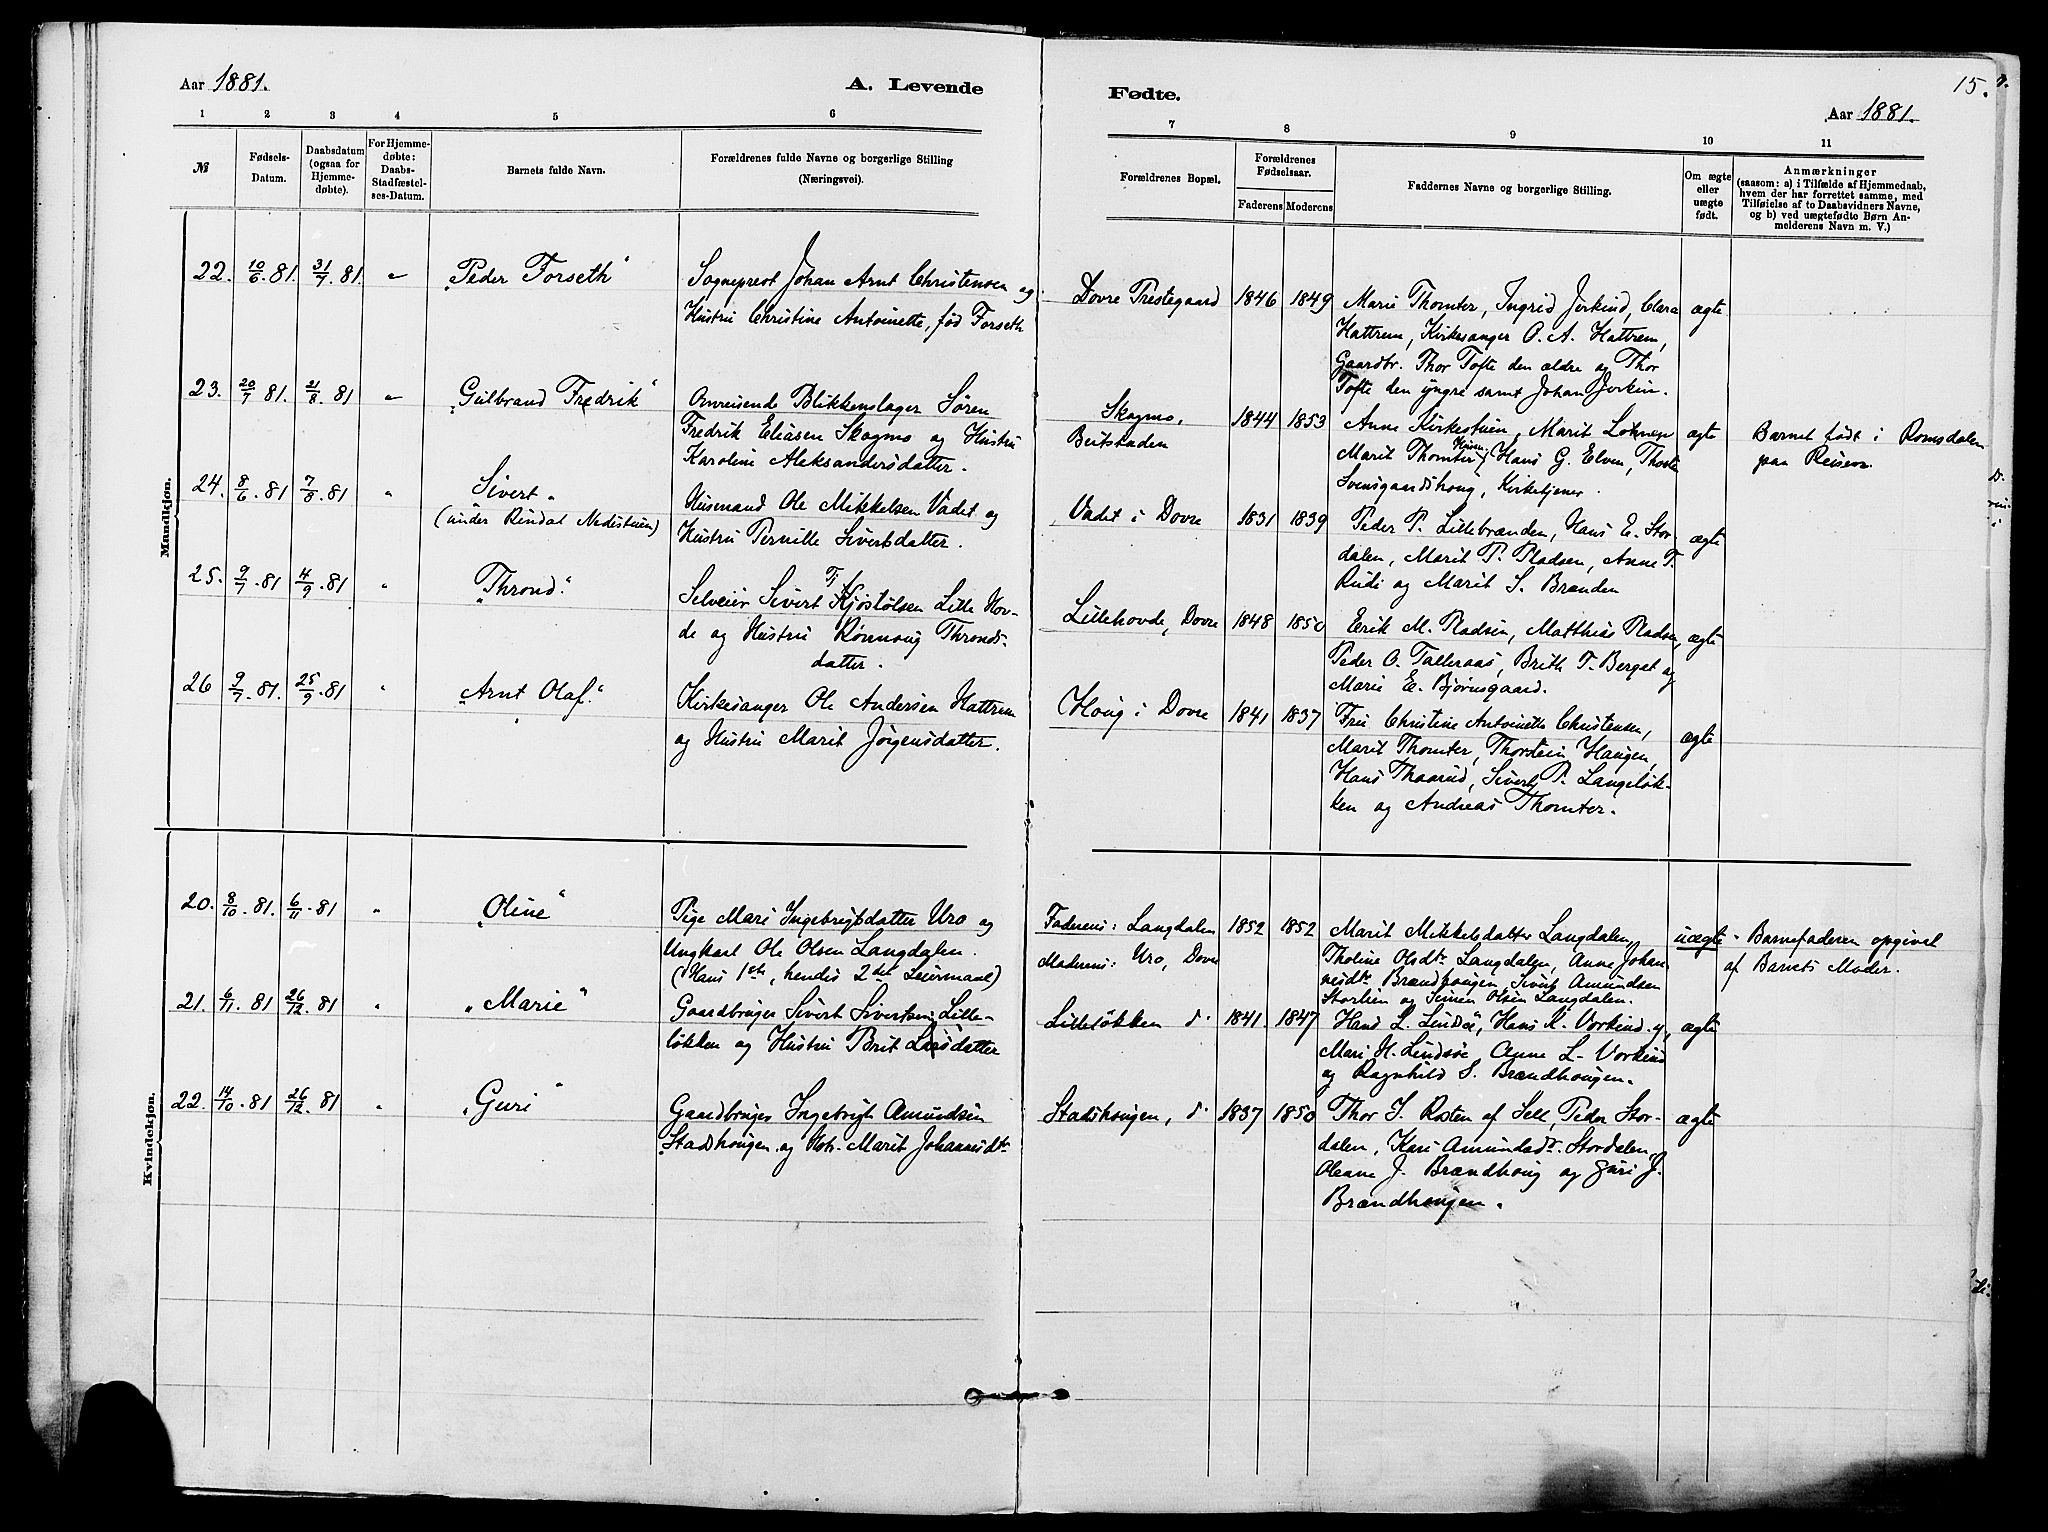 Aar 1881.
A. Levende
Fødte.
15.
Aar 1881.
1 2 3 4 5 6 7 8 9 10 11
№
Fødsels-
Datum.
Daabsdatum
(ogsaa for
Hjemme-
døbte).
For Hjemme-
døbte:
Daabs-
Stadfæstel-
ses-Datum.
Barnets fulde Navn.
Forældrenes fulde Navne og borgerlige Stilling
(Næringsvei).
Forældrenes Bopæl.
Forældrenes
Fødselsaar.
Faderens Moderens
Faddernes Navne og borgerlige Stilling.
Om ægte
eller
uægte
født.
Anmærkninger
(saasom: a) i Tilfælde af Hjemmedaab,
hvem der har forrettet samme, med
Tilføielse af to Daabsvidners Navne,
og b) ved uægtefødte Børn An-
melderens Navn m. V.)
Mandkjøn.
22. 10/6. 81. 31/7. 81. „ „Peder Forseth"
Sogneprest Johan Arnt Christensen og
Hustru Christine Antoinette, fød Forseth
Dovre Prestegaard 1846 1849
Marie Thomter, Ingrid Jerkind, Clara
Hattrem, Kirkesanger O. A. Hattrem,
Gaardbr. Thor Tofte den ældre og Thor
Tofte den yngre samt Johan Jerkin.
ægte
23. 20/7 81. 21/8. 81 „ „Gulbrand Fredrik"
Omreisende Blikkenslager Sören
Fredrik Eliasen Skagmo og Hustru
Karoline Aleksandersdatter.
Skagmo,
Beitstaden
1844 1853
Anne Kirkestuen, Marit
Marit Thomter, Hans G. Elven,
Svensgaardshaug, Kirketjener.
ægte
Barnet født i Romsdalen
paa Reisen.
24. 8/6. 81 7/8. 81 „ Sivert"
(under Rindal Nedistuen)
Husmand Ole Mikkelsen Vadet og
Hustru Pernille Sivertsdatter.
Vadet i Dovre 1831 1839
Peder P. Lillebrænden, Hans E. Stor-
dalen, Marit P. Pladsen, Anne T.
Rudi og Marit S. Brænden
ægte
25. 9/7. 81 4/9. 81 „ „Thrond."
Selveier Sivert Kjøstølsen Lille Hov-
de og Hustru Rønnoug Thronds-
datter.
Lillehovde, Dovre 1848 1850
Erik M. Pladsen, Matthias Pladsen,
Peder O. Talleraas, Brith T. Berget og
Marie E. Bjørnsgaard.
ægte
26 9/7. 81. 25/9. 81 „ „Arnt Olaf."
Kirkesanger Ole Andersen Hattrem
og Hustru Marit Jørgensdatter.
Houg i Dovre 1841 1837
Fru Christine Antoinette Christensen,
Marit Thomter, Thorstein Haugen,
Hans Thaarud, Sivert P. Langeløk-
ken og Andreas Thomter.
ægte
Kvindekjøn.
20. 8/10. 81. 6/11. 81 „ „Oline"
Pige Mari Ingebrigtsdatter Uro og
Ungkarl Ole Olsen Langdalen.
(Hans 1ste, hendes 2det Leiermaal)
Faderens: Langdalen
Moderens: Uro, Dovre
1852 1852
Marit Mikkelsdatter Langdalen,
Tholine Olsdtr. Langdalen, Anne Johan-
nesdtr. Brændhougen, Sivert Amundsen
Storlien og Simen Olsen Langdalen.
uægte
Barnefaderen opgivet
af Barnets Moder.
21. 6/11. 81 26/12. 81 „ „Marie"
Gaardbruger Sivert Sivertsen Lille-
løkken og Hustru Brit Larsdatter
Lilleløkken d. 1841. 1847
Hans L. Lindsöe, Hans K. Vorkind. y,
Mari H. Lindsöe, Anne L. Vorkind
og Ragnhild S. Brændhougen.
ægte
22. 14/10. 81 26/12. 81 „ „Guri"
Gaardbruger Ingebrigt Amundsen
Stadshougen og Hstr. Marit Johannesdtr
Stadshougen, d. 1837 1850
Thor S. Rosten af Sell, Peder Stor-
dalen, Kari Amundsdtr. Stordalen,
Oleane J. Brændhoug og Guri J.
Brændhougen.
ægte